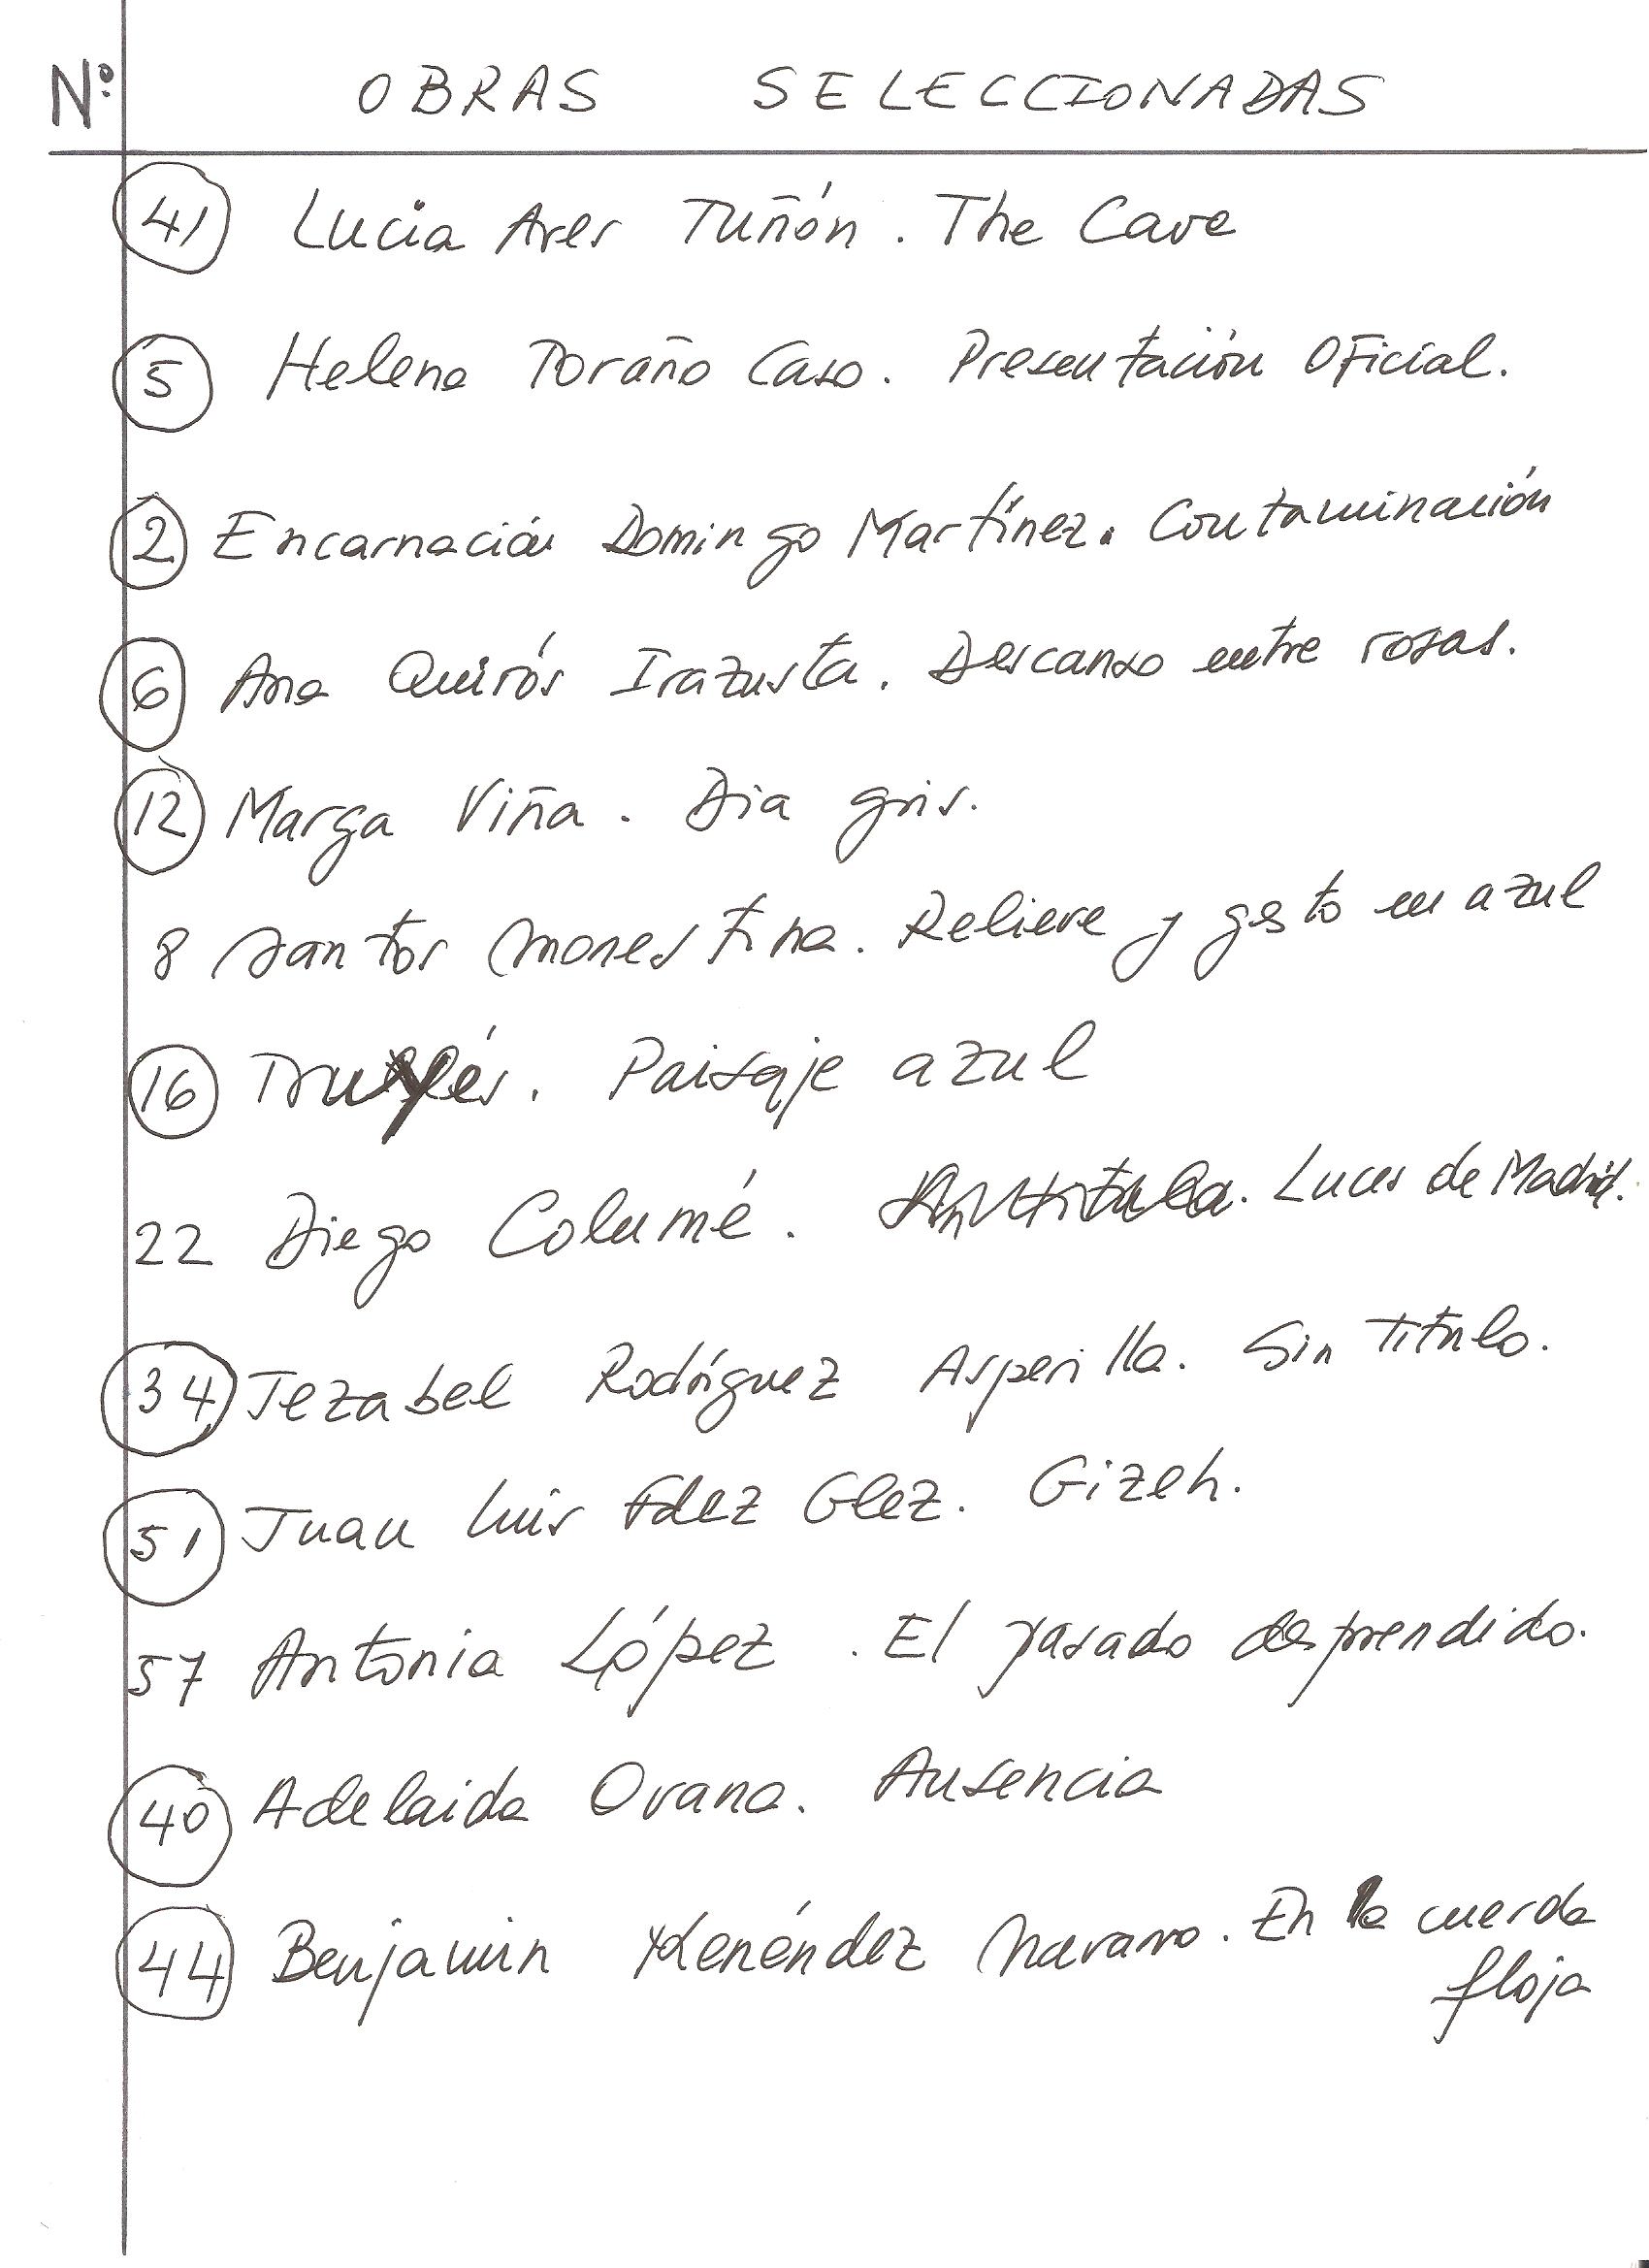 Nº: OBRAS SELECCIONADAS
41 Lucia Ares Tuñón. The Cave
5 Helena Toraño Caso. Presentación Oficial.
2 Encarnación Domingo Martínez. Contaminación
6 Ana Quirós Irazusta. Descanso entre rosas.
12 Marga Viña. Dia gris.
8 Santos Monestina. Relieve y gesto en azul
16 Paisaje azul
22 Diego Columé. Luces de Madrid.
34 Jezabel Rodríguez Asperilla. Sin Titulo.
51 Juan Luis Fdez Glez. Gizeh.
57 Antonia López. El pasado desprendido.
40 Adelaida Ovana. Ausencia
44 Benjamin Menéndez Navarro. En la cuerda
floja